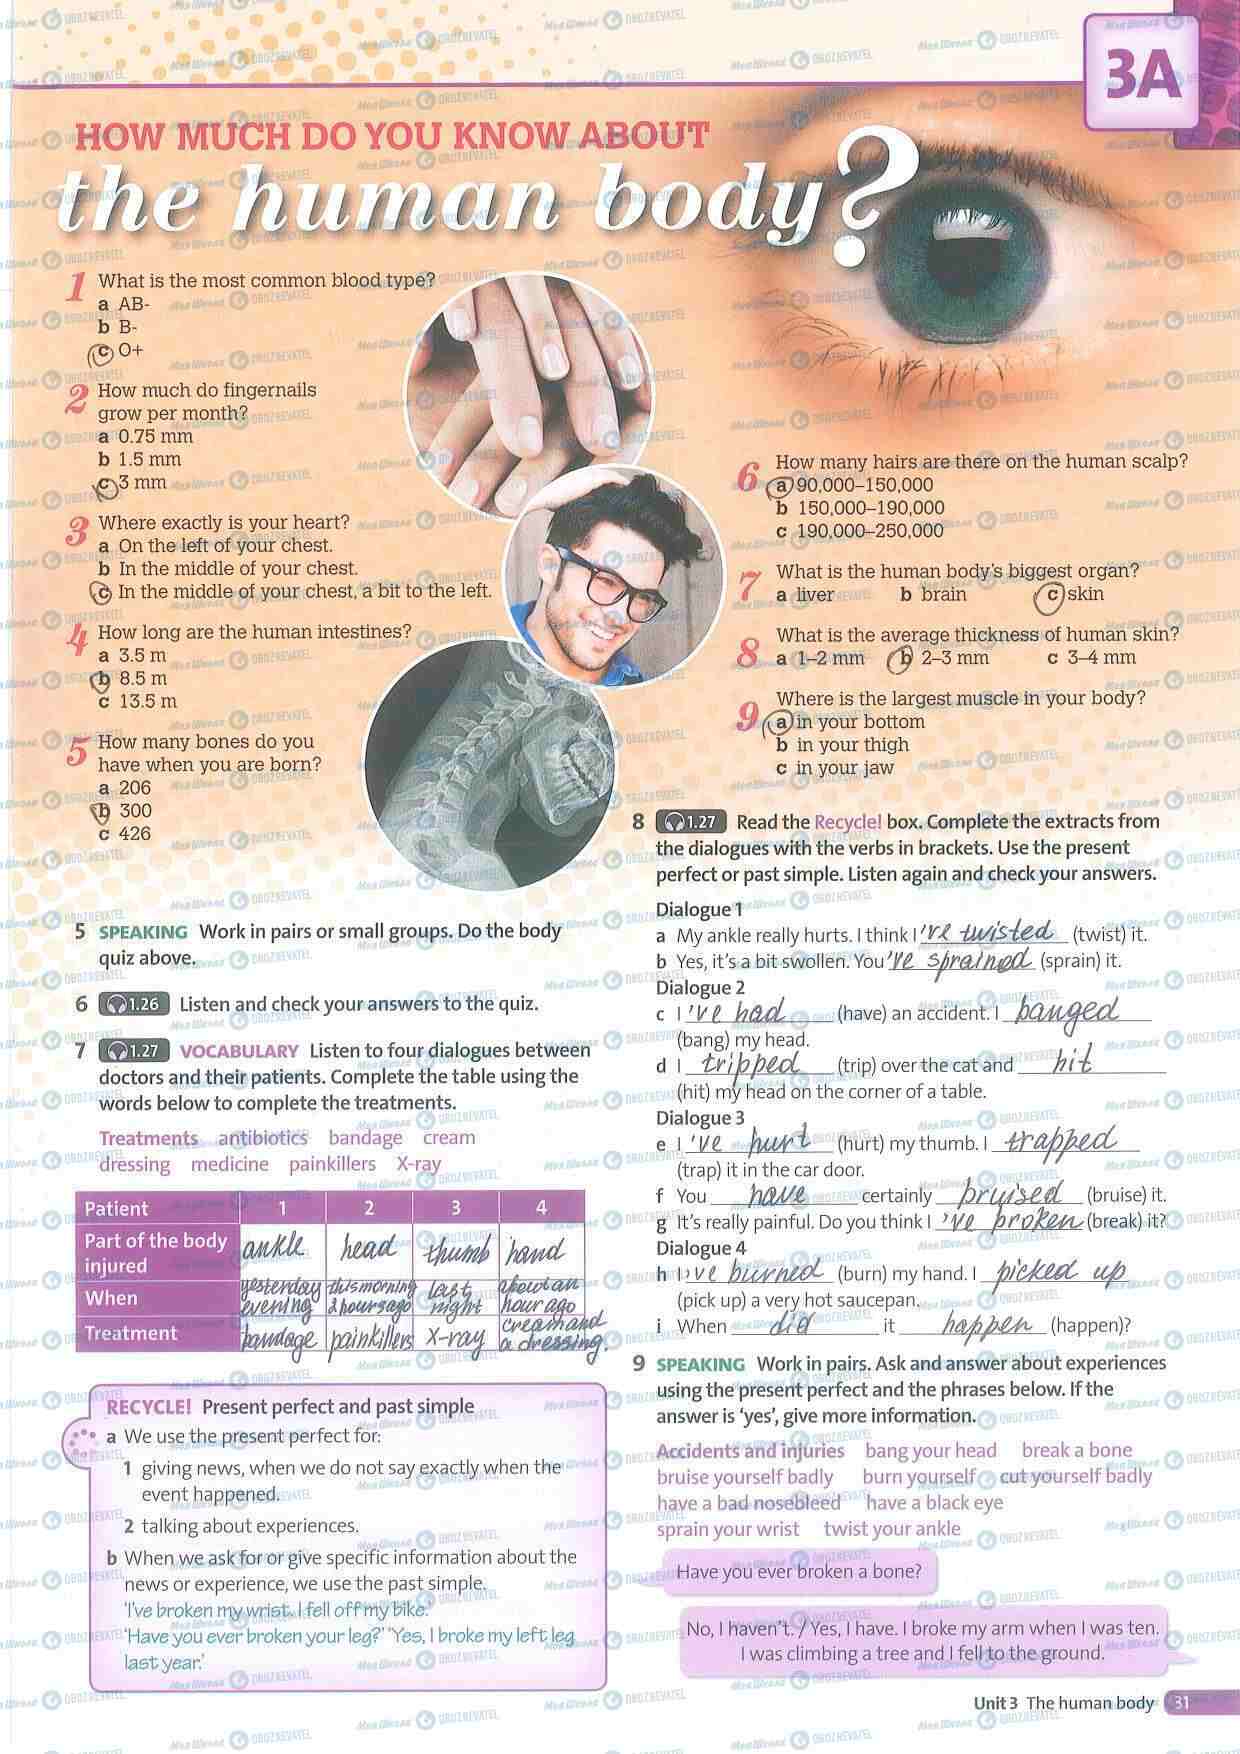 3A
HOW MUCH DO YOU KNOW ABOUT
the human body?
1 What is the most common blood type?
a AB-
b B-
c O+
2 How much do fingernails
grow per month?
a 0.75 mm
b 1.5 mm
c 3 mm
3 Where exactly is your heart?
a On the left of your chest.
b In the middle of your chest.
c In the middle of your chest, a bit to the left.
4 How long are the human intestines?
a 3.5 m
b 8.5 m
c 13.5 m
5 How many bones do you
have when you are born?
a 206
b 300
c 426
6 How many hairs are there on the human scalp?
a 90,000–150,000
b 150,000–190,000
c 190,000–250,000
7 What is the human body's biggest organ?
a liver b brain c skin
8 What is the average thickness of human skin?
a 1–2 mm b 2–3 mm c 3–4 mm
9 Where is the largest muscle in your body?
a in your bottom
b in your thigh
c in your jaw
5 SPEAKING Work in pairs or small groups. Do the body
quiz above.
6 1.26 Listen and check your answers to the quiz.
7 1.27 VOCABULARY Listen to four dialogues between
doctors and their patients. Complete the table using the
words below to complete the treatments.
Treatments antibiotics bandage cream
dressing medicine painkillers X-ray
Patient 1 2 3 4
Part of the body
injured ankle head thumb hand
When yesterday evening this morning 2 hours ago last night about an hour ago
Treatment bandage painkillers x-ray cream and a dressing.
RECYCLE! Present perfect and past simple
a We use the present perfect for:
1 giving news, when we do not say exactly when the
event happened.
2 talking about experiences.
b When we ask for or give specific information about the
news or experience, we use the past simple.
'I've broken my wrist. I fell off my bike.'
'Have you ever broken your leg?' 'Yes, I broke my left leg
last year.'
8 1.27 Read the Recycle! box. Complete the extracts from
the dialogues with the verbs in brackets. Use the present
perfect or past simple. Listen again and check your answers.
Dialogue 1
a My ankle really hurts. I think I 've twisted (twist) it.
b Yes, it's a bit swollen. You 've sprained (sprain) it.
Dialogue 2
c I 've had (have) an accident. I banged
(bang) my head.
d I tripped (trip) over the cat and hit
(hit) my head on the corner of a table.
Dialogue 3
e I 've hurt (hurt) my thumb. I trapped
(trap) it in the car door.
f You have certainly bruised (bruise) it.
g It's really painful. Do you think I 've broken (break) it?
Dialogue 4
h I 've burned (burn) my hand. I picked up
(pick up) a very hot saucepan.
i When did it happen (happen)?
9 SPEAKING Work in pairs. Ask and answer about experiences
using the present perfect and the phrases below. If the
answer is 'yes', give more information.
Accidents and injuries bang your head break a bone
bruise yourself badly burn yourself cut yourself badly
have a bad nosebleed have a black eye
sprain your wrist twist your ankle
Have you ever broken a bone?
No, I haven't. / Yes, I have. I broke my arm when I was ten.
I was climbing a tree and I fell to the ground.
Unit 3 The human body 31